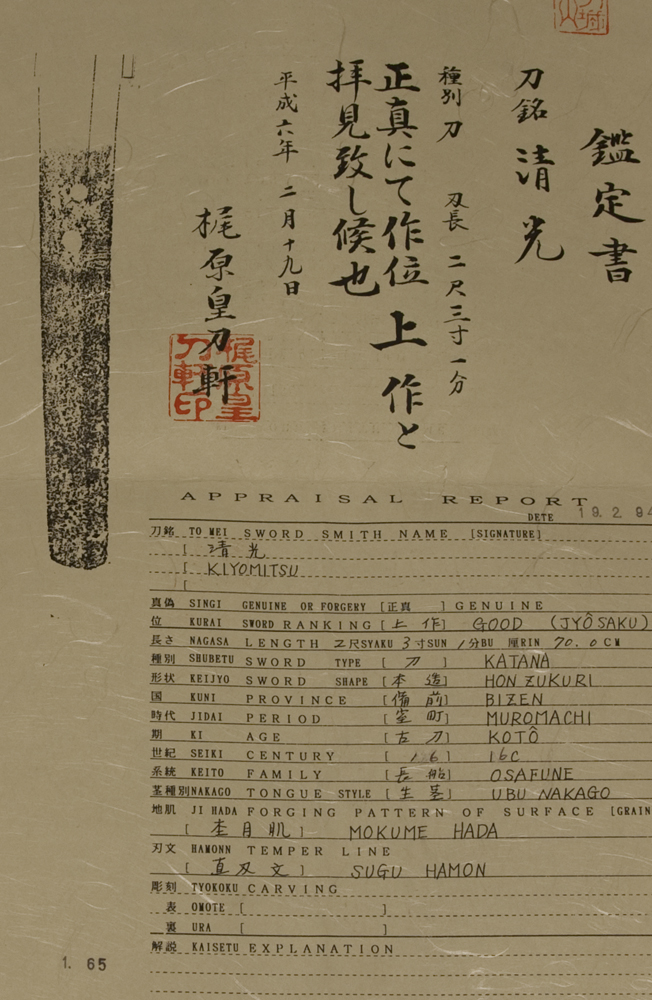 鑑定書
刀銘 清光
種別 刀 刃長 二尺三寸一分
正真にて作位 上 作と
拝見致し候也
平成六年 二月十九日
梶原皇刀軒
梶原皇
刀軒印
APPRAISAL REPORT
DETE 19.2.94
刀銘 TO MEI SWORD SMITH NAME [SIGNATURE]
[ 清光
[ KIYOMITSU
[
真偽 SINGI GENUINE OR FORGERY [正真 ] GENUINE
位 KURAI SWORD RANKING [上作] GOOD (JYÔSAKU)
長さ NAGASA LENGTH 2尺SYAKU 3寸SUN 1分BU 厘RIN 70.0CM
種別 SHUBETU SWORD TYPE [ 刀 ] KATANA
形状 KEIJYO SWORD SHAPE [本造] HON ZUKURI
国 KUNI PROVINCE [備前] BIZEN
時代 JIDAI PERIOD [室町] MUROMACHI
期 KI AGE [古刀] KOTÔ
世紀 SEIKI CENTURY [ 16 ] 16C
系統 KEITO FAMILY [長船] OSAFUNE
茎種別 NAKAGO TONGUE STYLE [生茎] UBU NAKAGO
地肌 JI HADA FORGING PATTERN OF SURFACE [GRAIN
[ 杢目肌 ] MOKUME HADA
刃文 HAMONN TEMPER LINE
[ 直刃文 ] SUGU HAMON
彫刻 TYOKOKU CARVING
表 OMOTE [ ]
裏 URA [ ]
解説 KAISETU EXPLANATION
1. 65